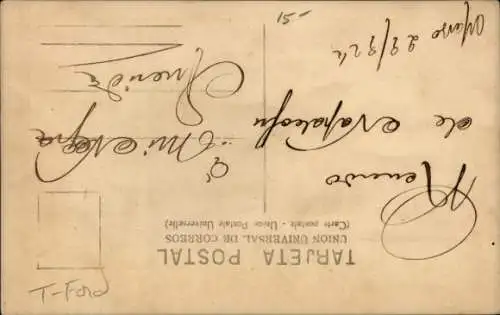 TARJETA POSTAL
UNION UNIVERSAL DE CORREOS
(Carte postale - Union Postale Universelle)
Marzo 29/924
Recuerdo
de Napoleon
A mi Negra
Querida
15-
T-Ford